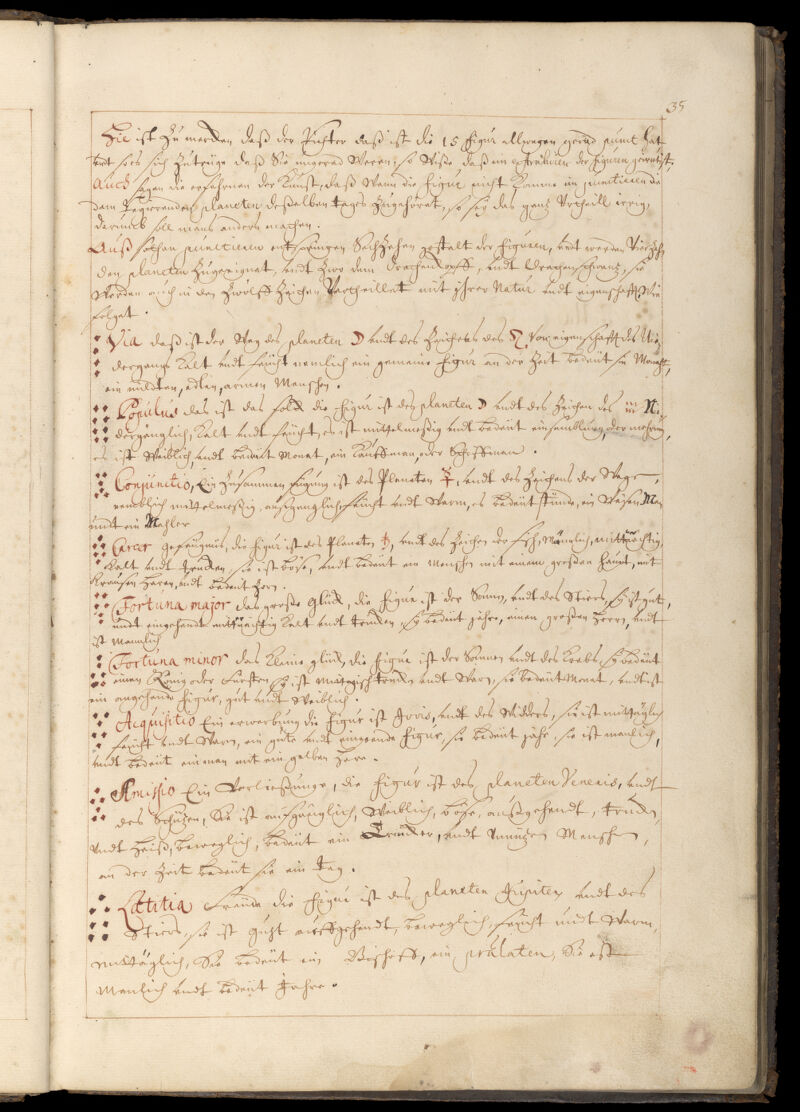 35
Hie ist Zu mercken daß der Richter daß ist die 15 figur allwegen gerad punct hat
undt so es sich Zutrüge daß Sie ungerad weren, so wiße daß im der figuren geirret ist,
Auch sagen die erfahrnen der Kunst, daß wann die figur nicht komme im punctieren die
dem Regierenden planeten deßelben tages Zugehöret, so sey das gantz Urtheill irrig,
derwegen soll mans anders machen.
Auß solchen punctieren entspringen Sechzehen gestalt der figuren, undt werden Vierzeh
den planeten Zugeeignet, undt Zwo dem Drachenkopff, undt Drachenschwantz, sie
werden auch in den Zwölff Zeichen Vertheillet mit ihrer Natur undt eigenschafft, Wie
folget.
Via daß ist der Weg des planeten ☽ undt des Zeichens des ♌ Von eigenschafft des Ni-
dergangs kalt undt feücht nemlich ein gemeine figur an der Zeit bedeüt sie Monat,
ein milten, edlen, armen Menschen.
Populus das ist das folck die figur ist des planeten ☽ undt des Zeichen des Ni-
dergänglich, kalt undt feücht, es ist mittelmeßig undt bedeüt einsamblung, oder mehrung,
es ist Weiblich, undt bedeüt Monat, ein kauffman, oder Schiffman.
Conjunctio, Ein Zusammenfügung ist des Planeten ☿, undt des Zeichens der Wage,
nemblich mittelmeßig, auffgänglich feücht undt Warm, es bedeüt stunde, ein Weisen Man
undt ein Mahler
Carcer gefengnüs, die figur ist des Planeten ♄, undt des Zeichen der fisch, Männlich, mittnächtig,
kalt undt trucken, sie ist böse, undt bedeüt ein Menschen mit einem großen haupt, mit
krausen haren, undt bedeüt Zorn.
Fortuna major das große Glück, die figur ist der Sonnen, undt des Stiers, sie ist gut,
undt eingehendt mittnächtig kalt undt trucken, sie bedeüt jahre, einen großen herrn, undt
ist Mannlich
Fortuna minor das kleine glück, die figur ist der Sonnen undt des krebs, sie bedeüt
einen König oder fürsten, sie ist mittagisch trucken undt Warm, sie bedeüt Monat, undt ist
ein angehende figur, gut undt Weiblich.
Acquisitio Ein erwerbung die figur ist Jovis, undt des Widders, sie ist mittäglich
feücht undt Warm, ein gute undt eingehende figur, sie bedeüt jahr, sie ist manlich,
undt bedeüt ein man mit ein gelben hare.
Amissio Ein Verließunge, die figur ist des planeten Veneris, undt
des Schützen, Sie ist aufgänglich, Weiblich, böße, außgehendt, trucken,
undt heiß, beweglich, bedeüt ein Trincker, undt Unnützen Menschen,
an der Zeit bedeüt sie ein tag.
Lætitia freüde die figur ist des planeten Jupiter undt des
Stiers, sie ist guht auffgehendt, beweglich, feücht undt Warm,
mittäglich, Sie bedeüt ein Bischoff, ein prälaten, Sie ist
Manlich undt bedeüt Jahre.